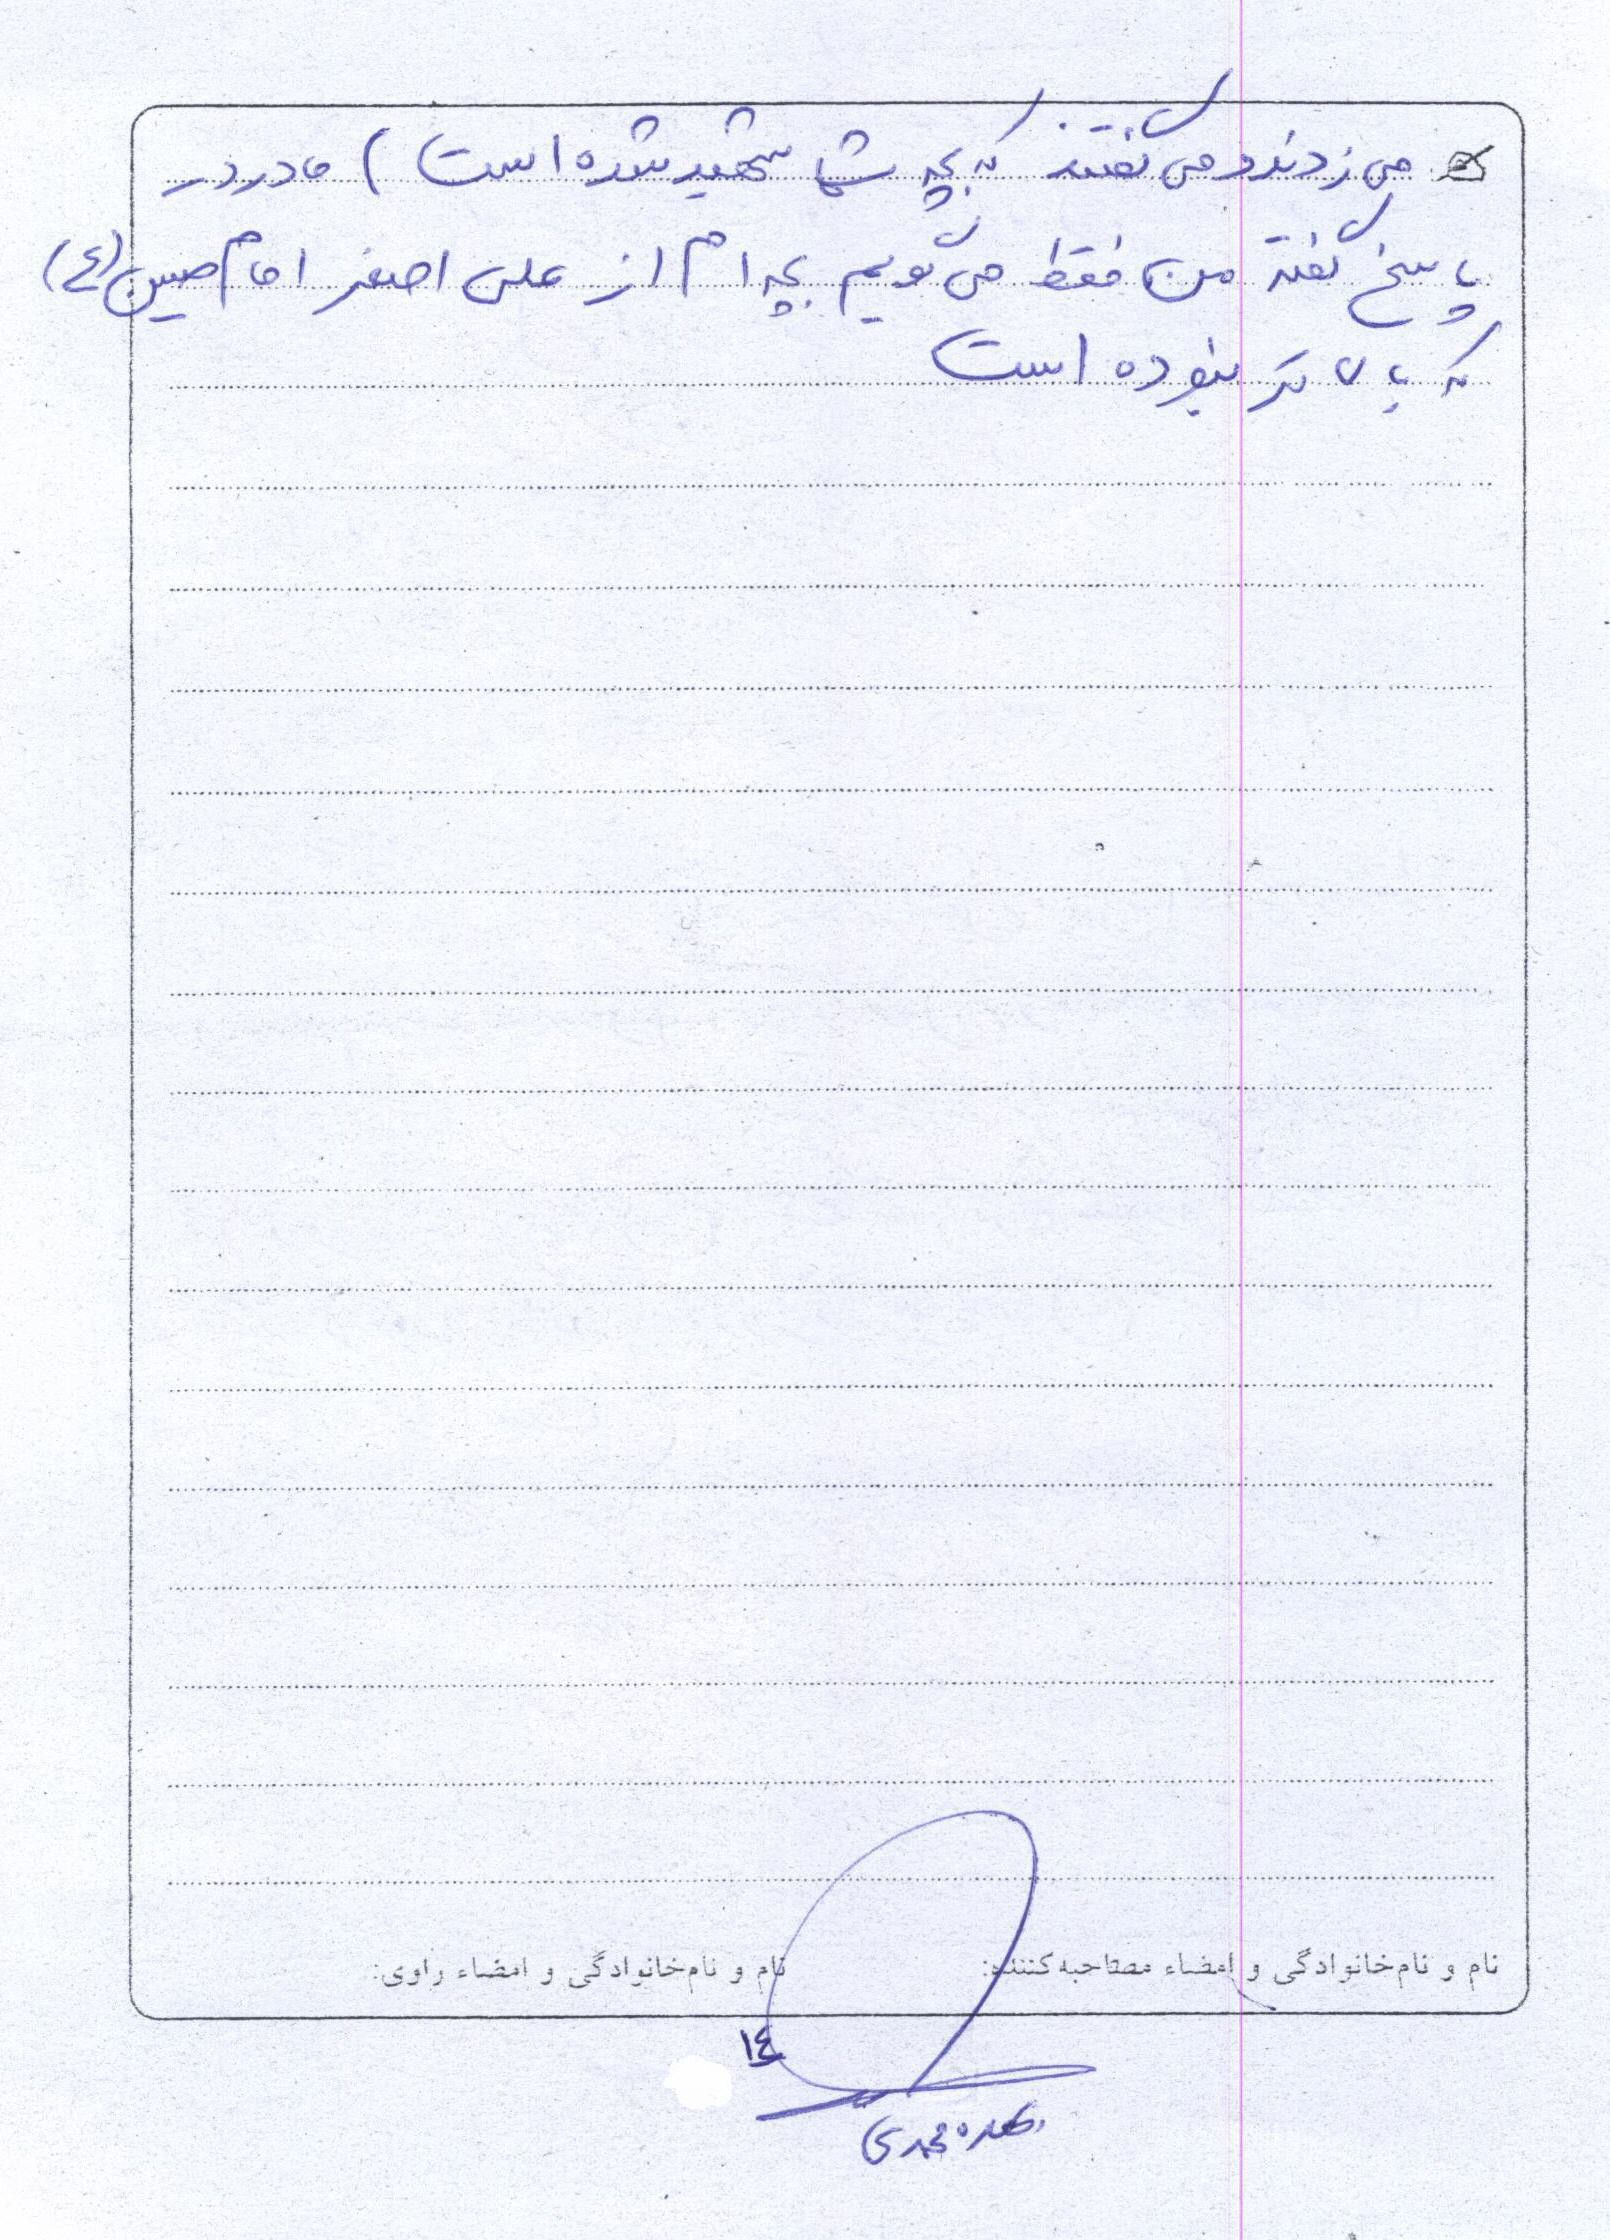 می زدند و می گفتند که بچه شما شهید شده است ) مادر در
پاسخ گفته من فقط می گویم بچه ام از علی اصغر امام حسین (ع)
که بالاتر نبوده است
نام و نام‌خانوادگی و امضاء مصاحبه‌کننده:
نام و نام‌خانوادگی و امضاء راوی:
١٤
محمدی